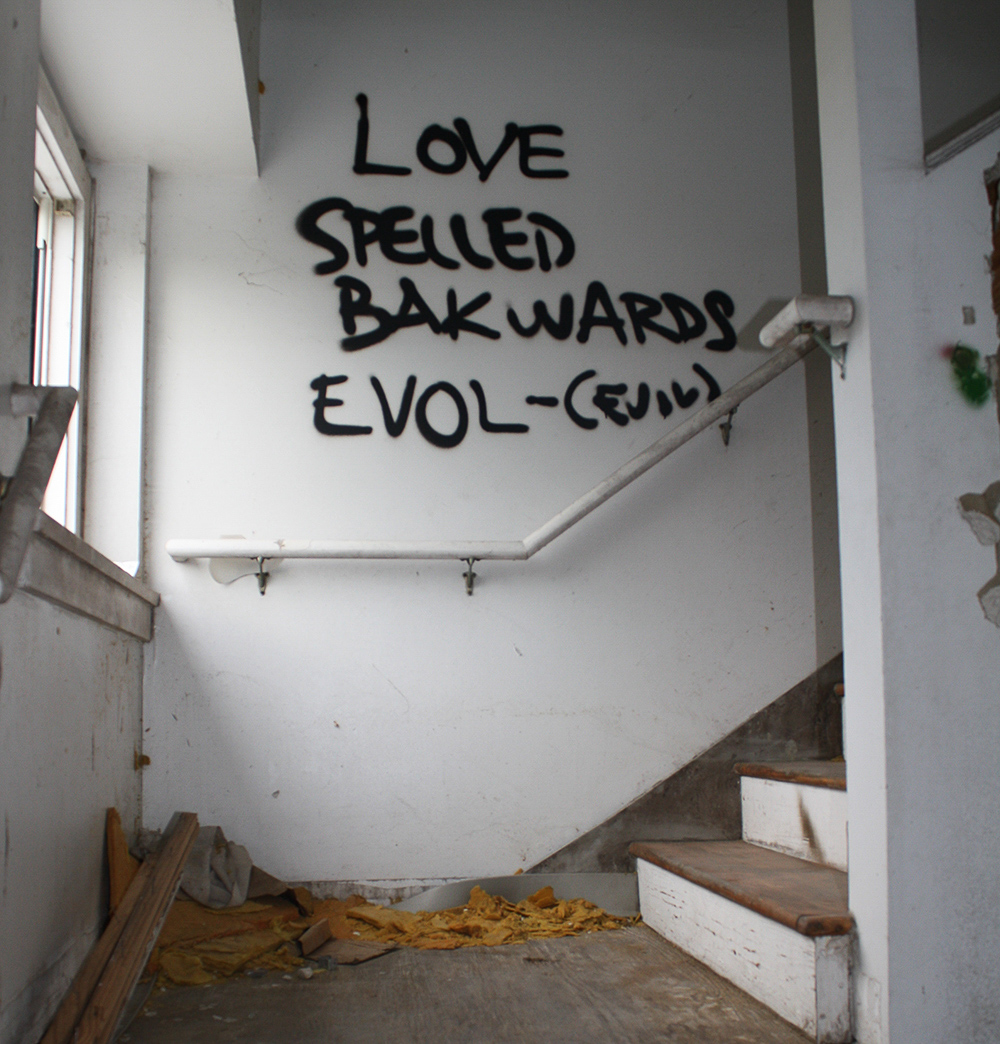 LOVE
SPELLED
BAKWARDS
EVOL-(EVIL)